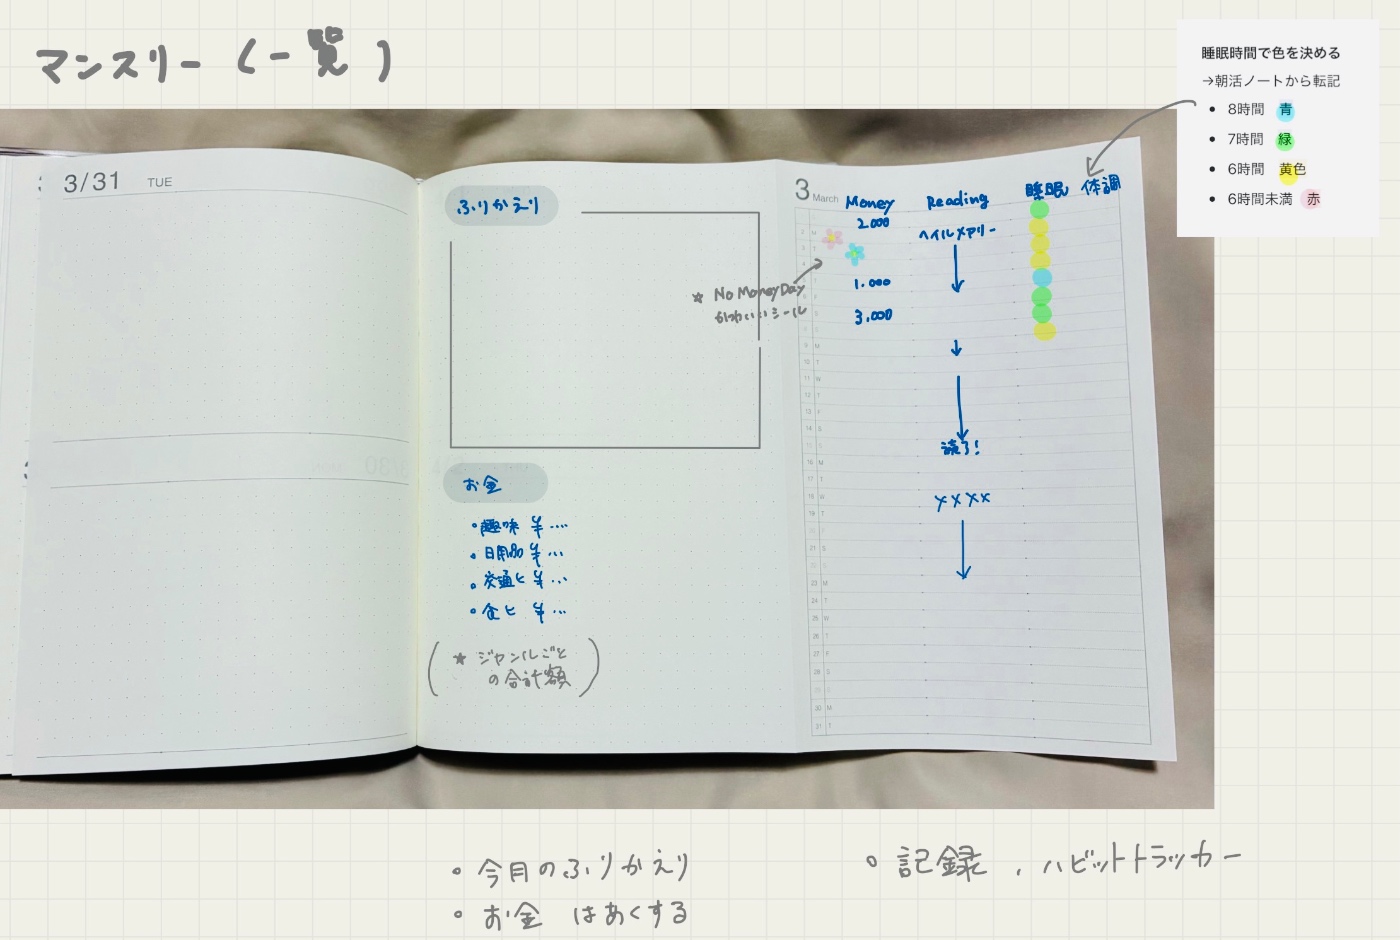 マンスリー（一覧）
睡眠時間で色を決める
→朝活ノートから転記
• 8時間 青
• 7時間 緑
• 6時間 黄色
• 6時間未満 赤
3/31 TUE
ふりかえり
お金
• 趣味 ¥…
• 日用品 ¥…
• 交通ヒ ¥…
• 食ヒ ¥…
（★ ジャンルごと
の合計額）
3 March
Money
Reading
睡眠
体調
2.000
ヘイルメアリー
★ No Money Day
かわいいシール
1.000
3.000
読了!
××××
• 今月のふりかえり
• お金 はあくする
• 記録、ハビットトラッカー